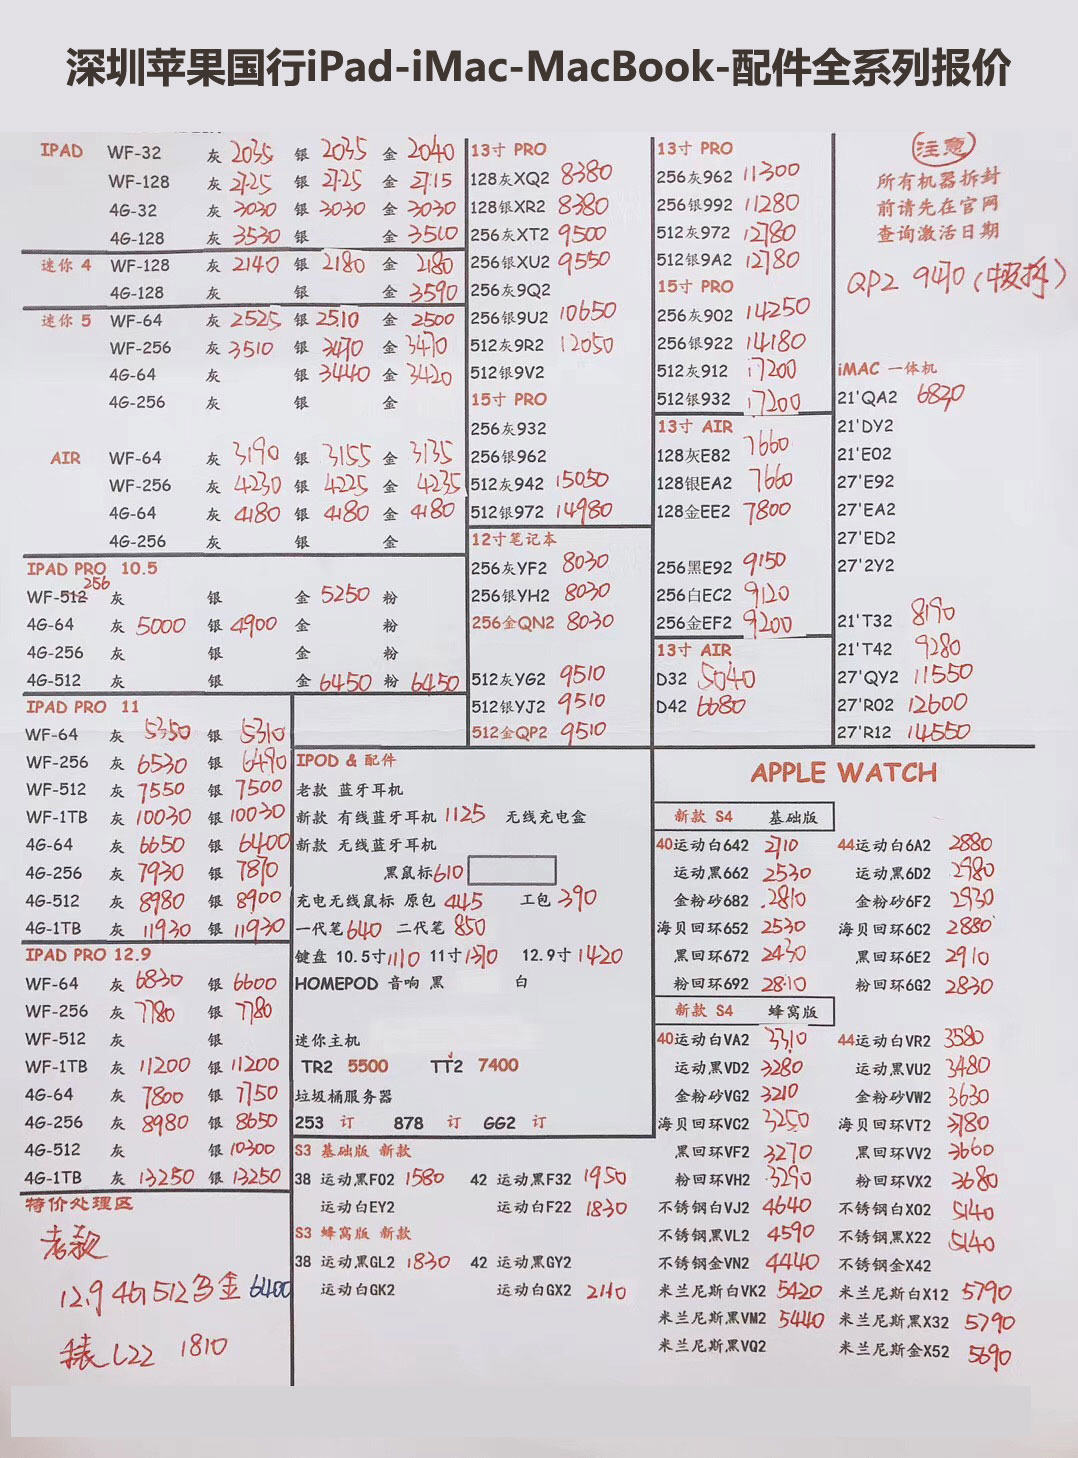 深圳苹果国行iPad-iMac-MacBook-配件全系列报价
IPAD WF-32 灰 2035 银 2035 金 2040
WF-128 灰 2125 银 2125 金 2115
4G-32 灰 3030 银 3030 金 3030
4G-128 灰 3530 银 金 3510
迷你 4 WF-128 灰 2140 银 2180 金 2180
4G-128 灰 银 金 3590
迷你 5 WF-64 灰 2525 银 2510 金 2500
WF-256 灰 3510 银 3470 金 3470
4G-64 灰 银 3440 金 3420
4G-256 灰 银 金
AIR WF-64 灰 3190 银 3155 金 3135
WF-256 灰 4230 银 4225 金 4235
4G-64 灰 4180 银 4180 金 4180
4G-256 灰 银 金
IPAD PRO 10.5
256
WF-512 灰 银 金 5250 粉
4G-64 灰 5000 银 4900 金 粉
4G-256 灰 银 金 粉
4G-512 灰 银 金 6450 粉 6450
IPAD PRO 11
WF-64 灰 5350 银 5310
WF-256 灰 6530 银 6490
WF-512 灰 7550 银 7500
WF-1TB 灰 10030 银 10030
4G-64 灰 6650 银 6400
4G-256 灰 7930 银 7870
4G-512 灰 8980 银 8900
4G-1TB 灰 11930 银 11930
IPAD PRO 12.9
WF-64 灰 6830 银 6600
WF-256 灰 7780 银 7780
WF-512 灰 银
WF-1TB 灰 11200 银 11200
4G-64 灰 7800 银 7750
4G-256 灰 8980 银 8650
4G-512 灰 银 10300
4G-1TB 灰 13250 银 13250
特价处理区
老款
12.9 4G 512 金 6400
表 L22 1810
13寸 PRO
128灰XQ2 8380
128银XR2 8380
256灰XT2 9500
256银XU2 9550
256灰9Q2
256银9U2 10650
512灰9R2 12050
512银9V2
15寸 PRO
256灰932
256银962
512灰942 15050
512银972 14980
12寸笔记本
256灰YF2 8030
256银YH2 8030
256金QN2 8030
512灰YG2 9510
512银YJ2 9510
512金QP2 9510
13寸 PRO
256灰962 11300
256银992 11280
512灰972 12780
512银9A2 12780
15寸 PRO
256灰902 14250
256银922 14180
512灰912 17200
512银932 17200
13寸 AIR
128灰E82 7660
128银EA2 7660
128金EE2 7800
256黑E92 9150
256白EC2 9120
256金EF2 9200
13寸 AIR
D32 5040
D42 6680
注意
所有机器拆封
前请先在官网
查询激活日期
QP2 9470
iMAC 一体机
21'QA2 6820
21'DY2
21'E02
27'E92
27'EA2
27'ED2
27'2Y2
21'T32 8190
21'T42 9280
27'QY2 11550
27'R02 12600
27'R12 14550
IPOD & 配件
老款 蓝牙耳机
新款 有线蓝牙耳机 1125 无线充电盒
新款 无线蓝牙耳机
黑鼠标 610
充电无线鼠标 原包 445 工包 390
一代笔 640 二代笔 850
键盘 10.5寸 1110 11寸 1370 12.9寸 1420
HOMEPOD 音响 黑 白
迷你主机
TR2 5500 TT2 7400
垃圾桶服务器
253 订 878 订 GG2 订
S3 基础版 新款
38 运动黑F02 1580 42 运动黑F32 1950
运动白EY2 运动白F22 1830
S3 蜂窝版 新款
38 运动黑GL2 1830 42 运动黑GY2
运动白GK2 运动白GX2 2140
APPLE WATCH
新款 S4 基础版
40运动白642 2710 44运动白6A2 2880
运动黑662 2530 运动黑6D2 2980
金粉砂682 2810 金粉砂6F2 2930
海贝回环652 2530 海贝回环6C2 2880
黑回环672 2430 黑回环6E2 2910
粉回环692 2810 粉回环6G2 2830
新款 S4 蜂窝版
40运动白VA2 3310 44运动白VR2 3580
运动黑VD2 3280 运动黑VU2 3480
金粉砂VG2 3210 金粉砂VW2 3630
海贝回环VC2 3250 海贝回环VT2 3780
黑回环VF2 3270 黑回环VV2 3660
粉回环VH2 3290 粉回环VX2 3680
不锈钢白VJ2 4640 不锈钢白X02 5140
不锈钢黑VL2 4590 不锈钢黑X22 5140
不锈钢金VN2 4440 不锈钢金X42
米兰尼斯白VK2 5420 米兰尼斯白X12 5790
米兰尼斯黑VM2 5440 米兰尼斯黑X32 5790
米兰尼斯黑VQ2 米兰尼斯金X52 5690